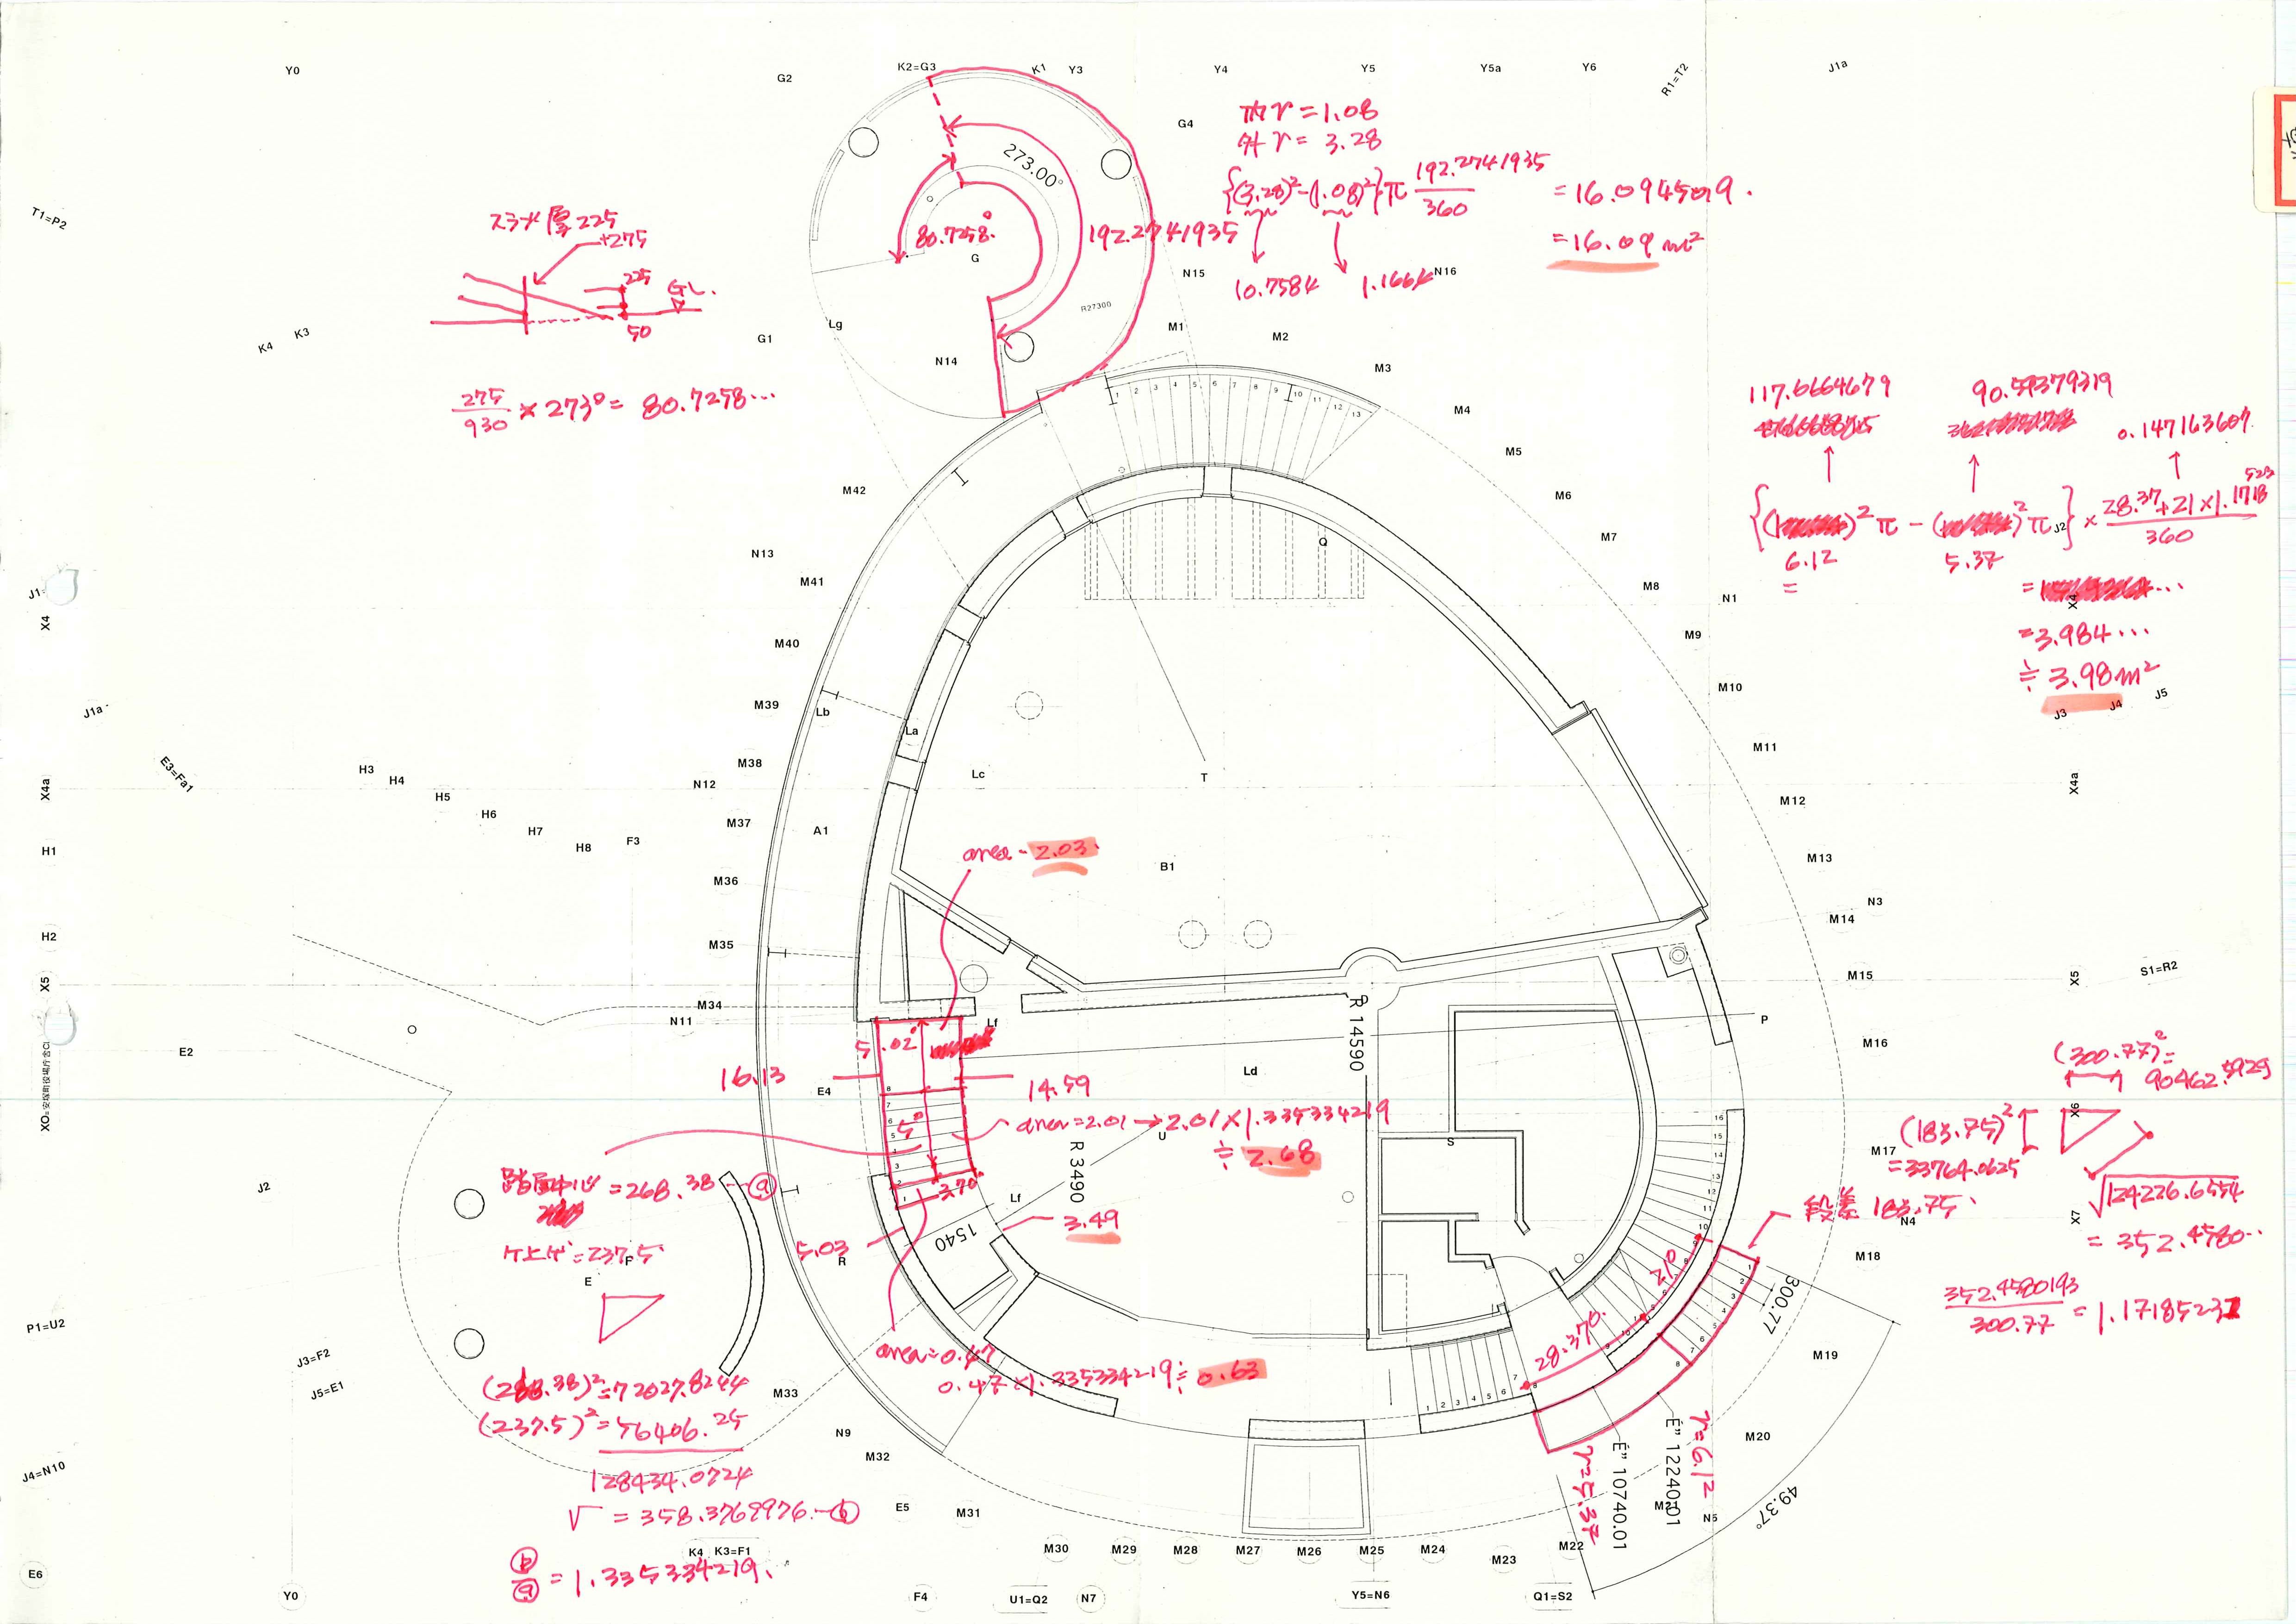 Y0
G2
K2=G3
K1
Y3
Y4
Y5
Y5a
Y6
R1=T2
J1a
G4
内r=1.08
外r=3.28
{(3.28)²-(1.08)²}π 192.2741935/360
=16.0945019.
=16.09m²
10.7584
1.1664
273.00°
80.7258°
192.2741935
G
N15
N16
R27300
T1=P2
スラブ厚225
+275
225
GL.
50
K4
K3
G1
Lg
N14
M1
M2
M3
M4
275/930 × 273° = 80.7258…
1 2 3 4 5 6 7 8 9 10 11 12 13
117.6664679
90.59379319
0.147163607
{( )²π-( )²π}× 28.37+21×1.1718523/360
J2
6.12
5.37
=
=3.984…
≒3.98m²
J3
J4
J5
M5
M6
M7
M8
N1
M9
M10
M11
M12
M13
N3
M14
M15
M16
M42
N13
M41
M40
M39
Lb
La
Lc
M38
N12
M37
A1
M36
M35
M34
N11
Q
T
B1
J1
X4
X4
J1a
E3=Fa1
X4a
X4a
H3
H4
H5
H6
H7
H8
F3
H1
H2
X5
X5
S1=R2
E2
area=2.03
Lf
5.02°
16.13
14.59
E4
5°
area=2.01→2.01×1.335334219
≒2.68
R 14590
R 3490
U
Ld
P
S
3.70
3.49
Lf
1540
5.03
R
area=0.47
0.47×1.335334219≒0.63
J2
踏面中心=268.38―ⓐ
ケ上ゲ=237.5
E
F
(268.38)²=72027.8244
(237.5)²=56406.25
128434.0724
√ =358.3769976―ⓑ
ⓑ/ⓐ=1.335334219.
P1=U2
J3=F2
J5=E1
J4=N10
E6
Y0
K4 K3=F1
F4
U1=Q2
N7
M33
N9
M32
E5
M31
M30
M29
M28
M27
M26
M25
M24
M23
M22
Y5=N6
Q1=S2
(300.77)²=
90462.5929
X6
(183.75)²
=33764.0625
M17
√124226.6554
=352.4580…
X7
段差 183.75
N4
M18
352.4580193/300.77=1.17185231
300.77
21°
28.37°
M19
M20
M21
N5
r=6.12
r=5.37
È" 12240.01
È" 10740.01
49.37°